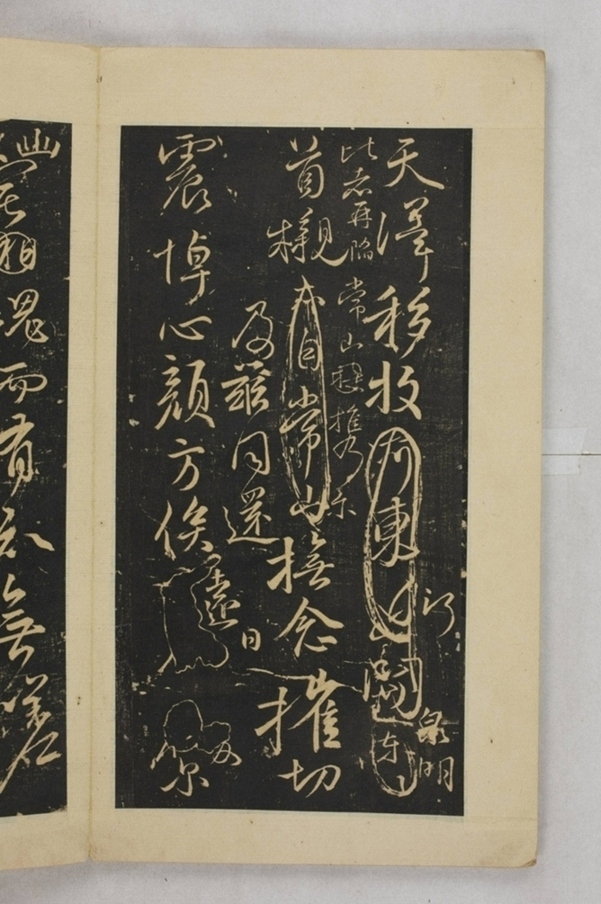 天澤移牧河東近河關
泉明
比者再陷常山攜爾
首櫬亦自常山撫念摧切
及茲同還
震悼心顏方俟遠日
爾
幽宅魂而有知無嗟久